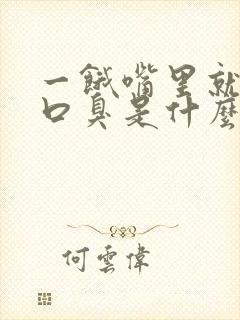 一餓嘴里就
口臭是什麽
何雲偉